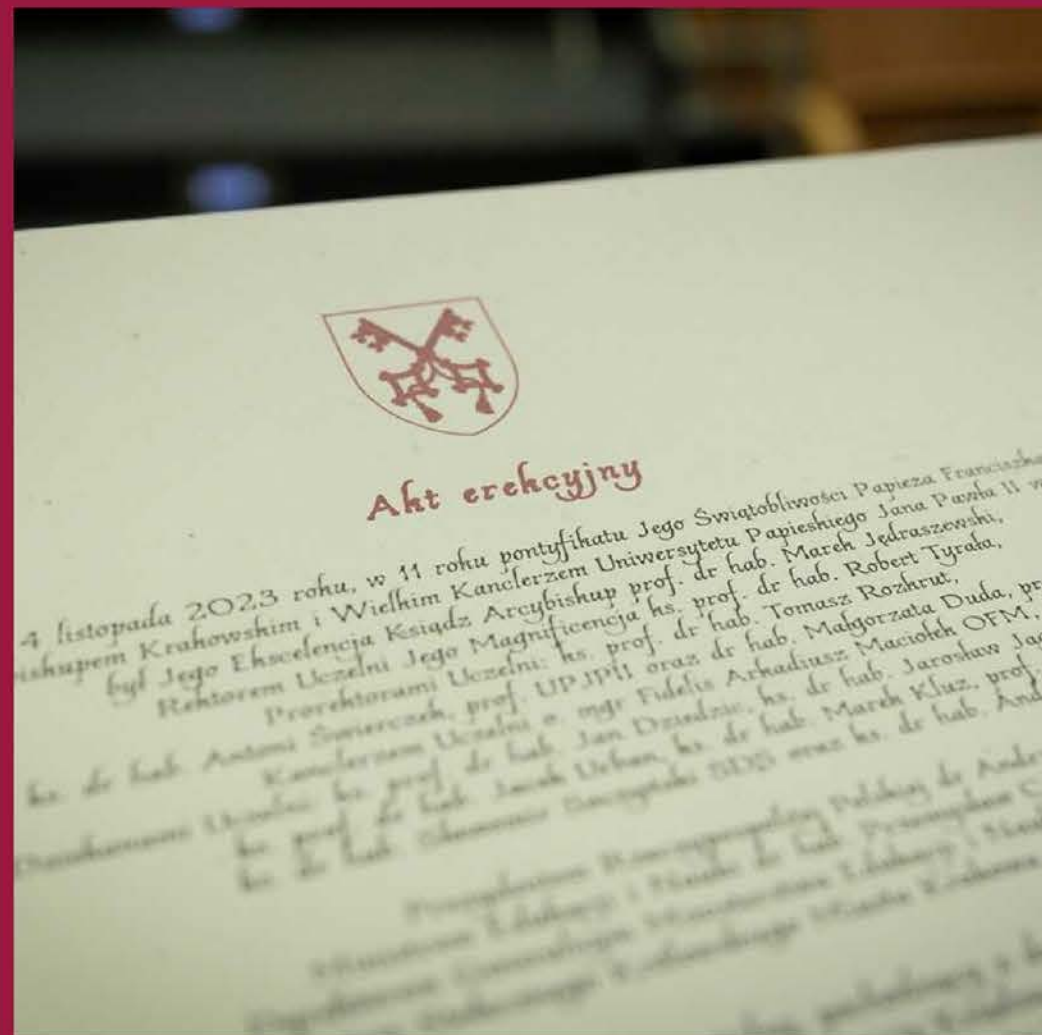 Akt erekcyjny
4 listopada 2023 roku, w 11 roku pontyfikatu Jego Świątobliwości Papieża Franciszka
iskupem Krakowskim i Wielkim Kanclerzem Uniwersytetu Papieskiego Jana Pawła II w
był Jego Ekscelencja Ksiądz Arcybiskup prof. dr hab. Marek Jędraszewski,
Rektorem Uczelni Jego Magnificencja ks. prof. dr hab. Robert Tyrała,
Prorektorami Uczelni: ks. prof. dr hab. Tomasz Rozkrut,
ks. dr hab. Antoni Świerczek, prof. UPJPII oraz dr hab. Małgorzata Duda, pr
Kanclerzem Uczelni o. mgr Fidelis Arkadiusz Maciołek OFM,
Dziekanami Uczelni: ks. prof. dr hab. Jan Dziedzic, ks. dr hab. Jarosław Jag
ks. prof. dr hab. Jacek Urban, ks. dr hab. Marek Kluz, prof.
ks. dr hab. Sławomir SDS oraz ks. dr hab. And
Prezydentem Rzeczypospolitej Polskiej dr Andr
Ministrem Edukacji i Nauki dr hab. Przemysław C
Ministerstwa Edukacji i Nauki
Miasta Krakowa